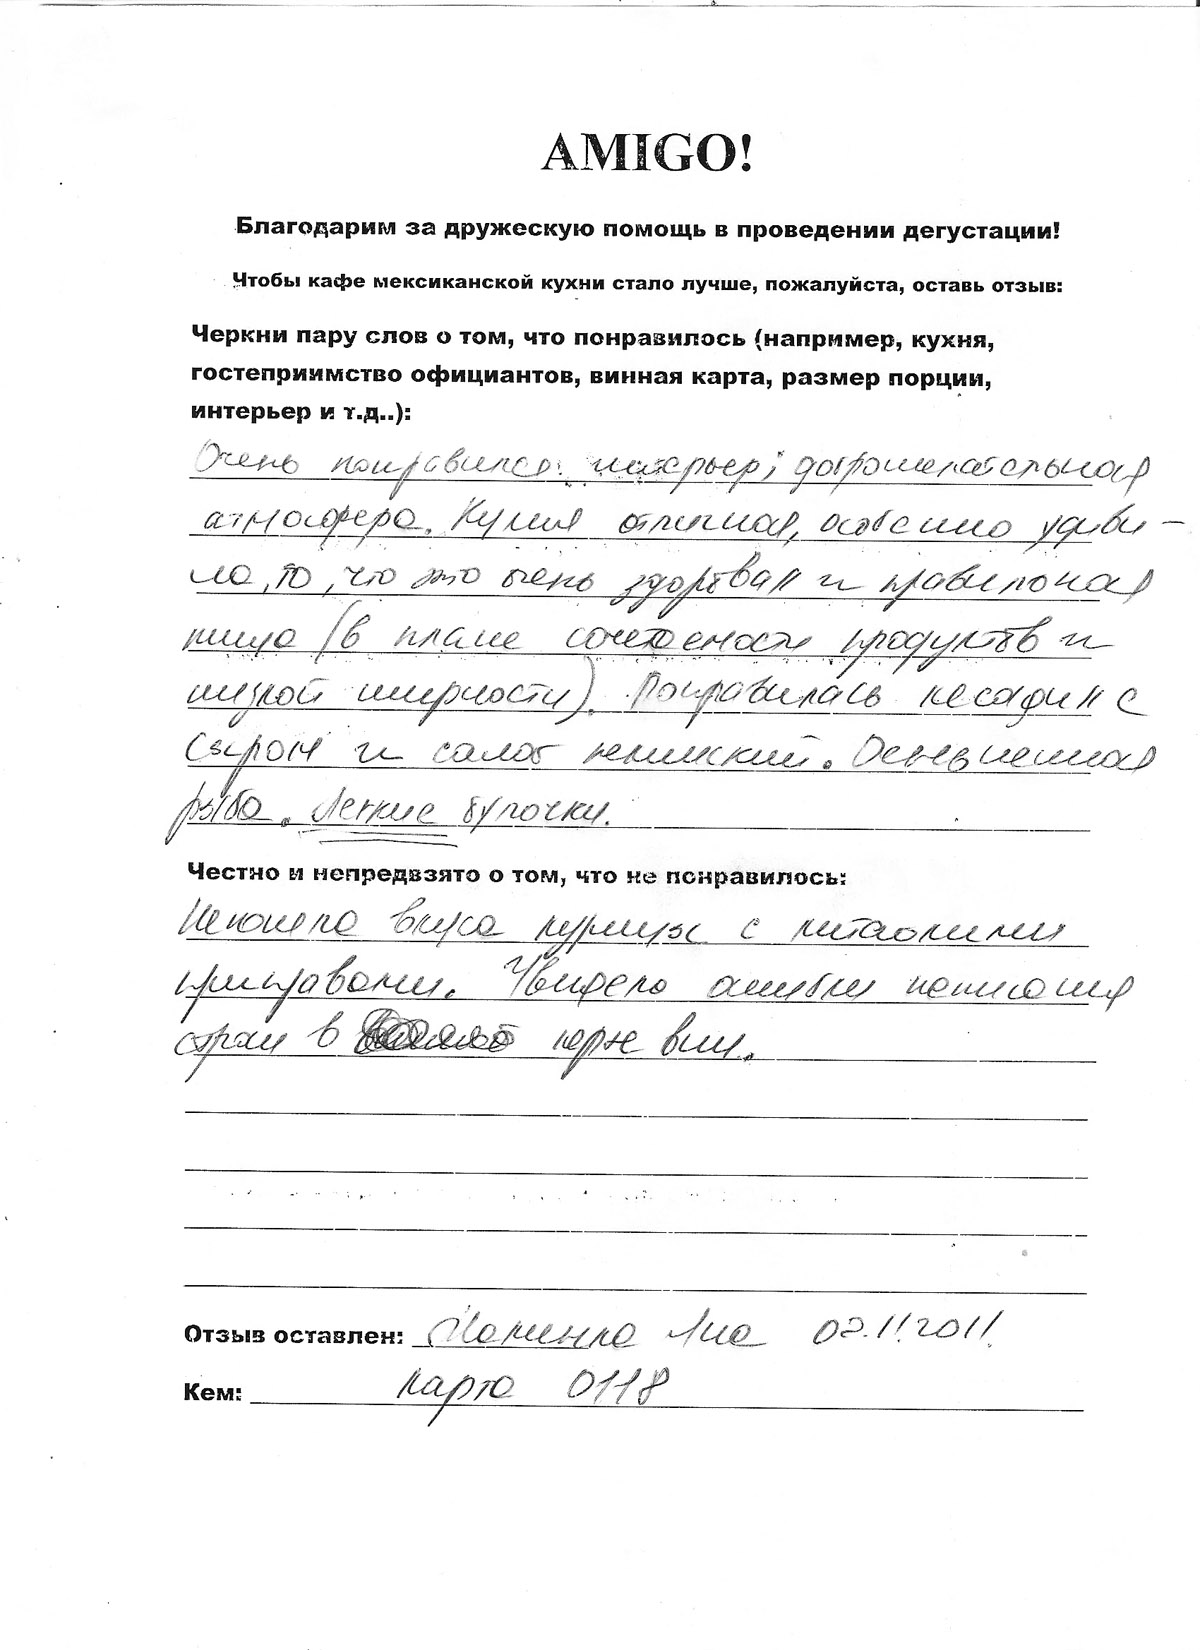 AMIGO!
Благодарим за дружескую помощь в проведении дегустации!
Чтобы кафе мексиканской кухни стало лучше, пожалуйста, оставь отзыв:
Черкни пару слов о том, что понравилось (например, кухня,
гостеприимство официантов, винная карта, размер порции,
интерьер и т.д..):
Очень понравился интерьер, доброжелательная
атмосфера. Кухня отличная, особенно удиви-
ло, то, что это очень здоровая и правильная
пища (в плане сочетаемости продуктов и
низкой жирности). Понравилась кесадия с
сыром и салат пекинский.
рыба. Легкие булочки.
Честно и непредвзято о том, что не понравилось:
вкуса курицы с
приправами. Увидела ошибки написания
стран в карте вин.
Отзыв оставлен: 02.11.2011
Кем: карта 0118